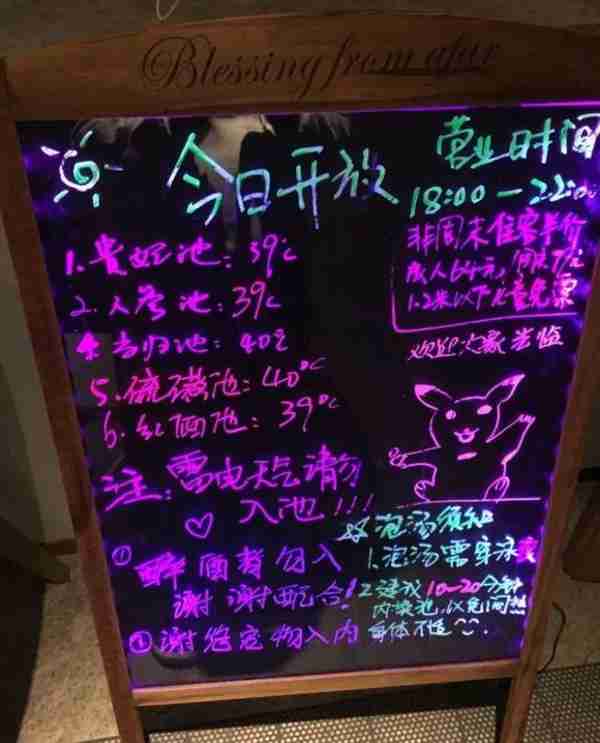 Blessing from afar
今日开放
营业时间
18:00—22:00
1.贵妃池：39℃
2.人参池：39℃
4.当归池：40℃
5.硫磺池：40℃
6.红酒池：39℃
非周末住客半价
成人64元，
1.2米以下儿童免票
欢迎大家光临
注：雷电天气请勿
入池！！！
①醉酒者勿入
谢谢配合！
②谢绝宠物入内
泡汤须知
1.泡汤需穿泳
2.建议10—20分钟
内换池，以免
身体不适